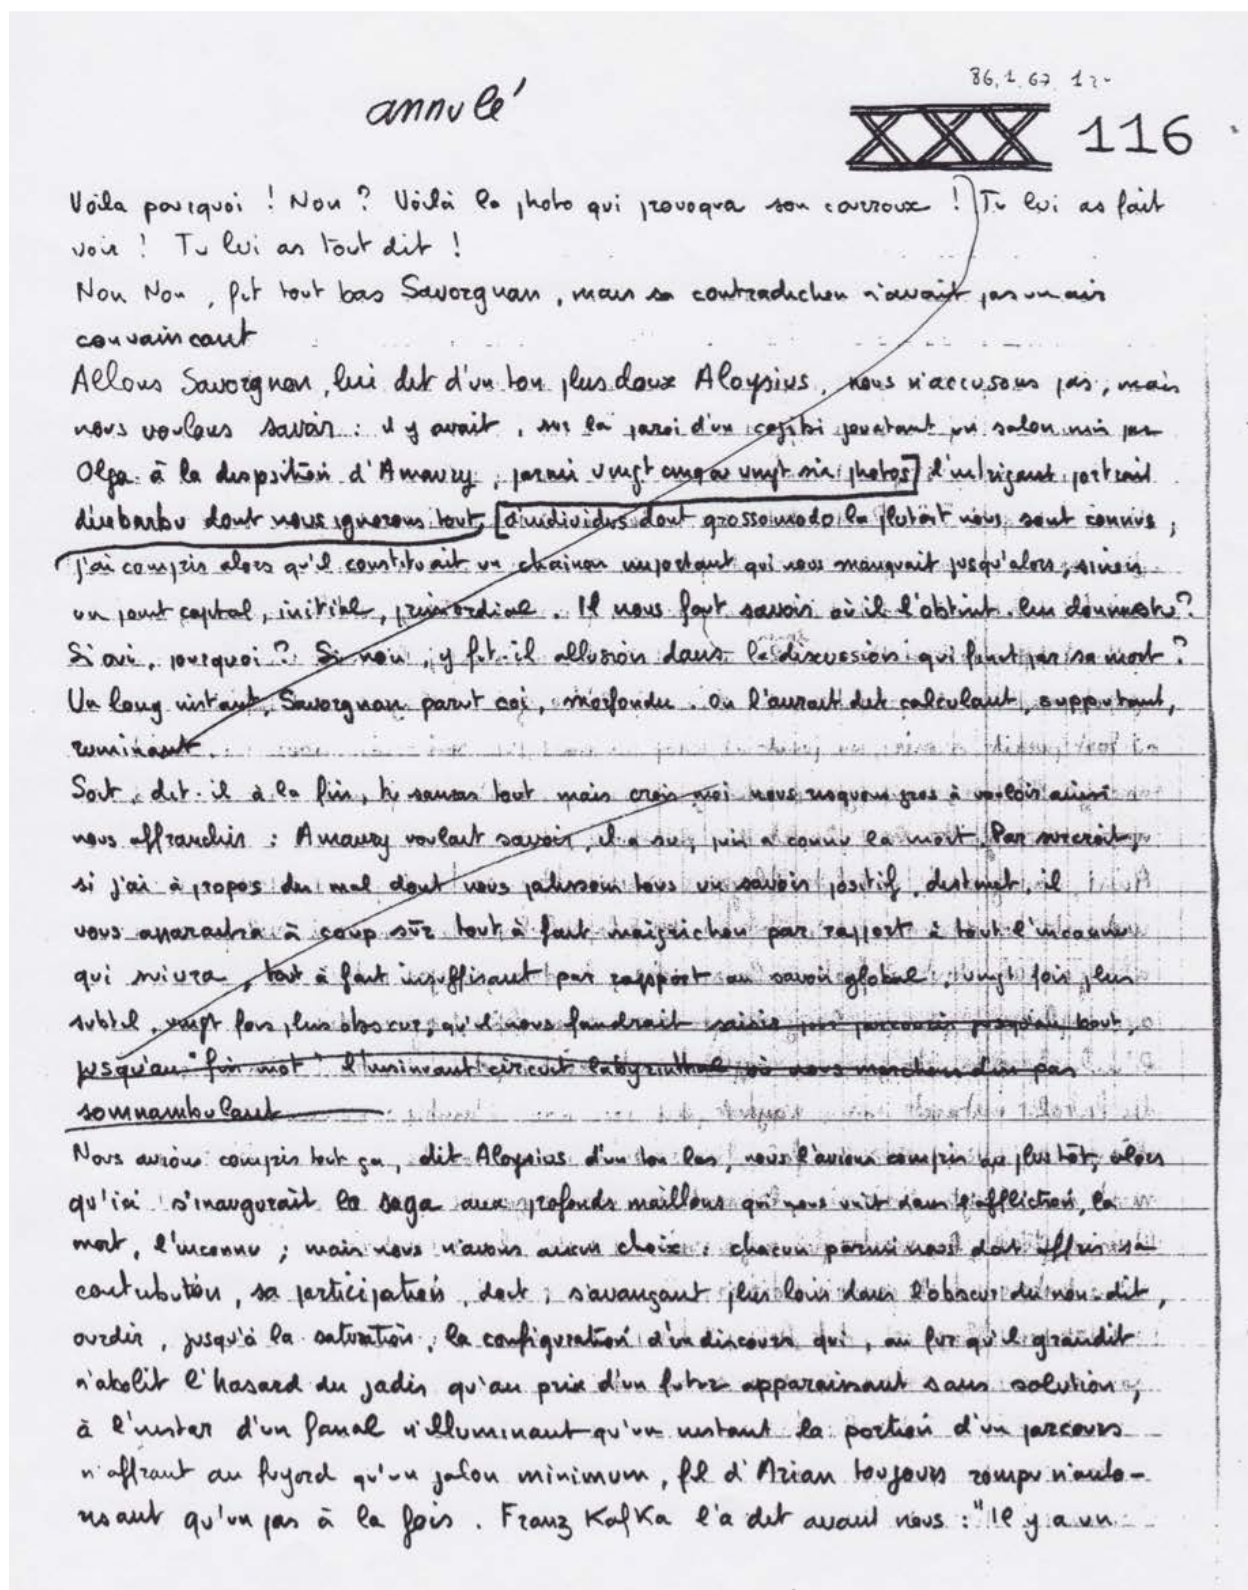 86,1,67
annulé
XXX 116
Voila pourquoi ! Non ? Voilà la photo qui provoqua son courroux ! Tu lui as fait
voir ! Tu lui as tout dit !
Non Non, fit tout bas Savorgnan, mais sa contradiction n'avait pas un air
convaincant
Allons Savorgnan, lui dit d'un ton plus doux Aloysius, nous n'accusons pas, mais
nous voulons savoir : il y avait, sur la paroi d'un cagibi jouxtant un salon mis par
Olga à la disposition d'Amaury, parmi vingt cinq ou vingt six photos l'intrigant portrait
d'un barbu dont nous ignorons tout, d'individus dont grosso modo la plupart nous sont connus,
j'ai compris alors qu'il constituait un chainon important qui nous manquait jusqu'alors, sinon
un point capital, initial, primordial. Il nous faut savoir où il l'obtint. L'en donnas tu ?
Si oui, pourquoi ? Si non, y fit-il allusion dans la discussion qui finit par sa mort ?
Un long instant, Savorgnan parut coi, morfondu. On l'aurait dit calculant, supputant,
ruminant.
Soit, dit-il à la fin, tu sauras tout mais crois moi nous risquons gros à vouloir ainsi
nous affranchir : Amaury voulait savoir, il a su, puis a connu la mort. Par surcroît,
si j'ai à propos du mal dont nous patissons tous un savoir positif, distinct, il
vous apparaitra à coup sûr tout à fait maigrichon par rapport à tout l'inconnu
qui suivra, tout à fait insuffisant par rapport au savoir global, vingt fois plus
subtil, vingt fois plus obscur, qu'il nous faudrait saisir pour parcourir jusqu'au bout,
jusqu'au "fin mot" l'insinuant circuit labyrinthal où nous marchons d'un pas
somnambulant
Nous avions compris tout ça, dit Aloysius d'un ton las, nous l'avions compris au plus tôt, alors
qu'ici s'inaugurait la saga aux profonds maillons qui nous unit dans l'affliction, la
mort, l'inconnu ; mais nous n'avons aucun choix : chacun parmi nous doit offrir sa
contribution, sa participation, doit, s'avançant plus loin dans l'obscur du non-dit,
ourdir, jusqu'à la saturation, la configuration d'un discours qui, au fur qu'il grandit
n'abolit l'hasard du jadis qu'au prix d'un futur apparaissant sans solution,
à l'instar d'un fanal n'illuminant qu'un instant la portion d'un parcours
n'offrant au fuyard qu'un jalon minimum, fil d'Arian toujours rompu n'auto-
risant qu'un pas à la fois. Franz Kafka l'a dit avant nous : "Il y a un